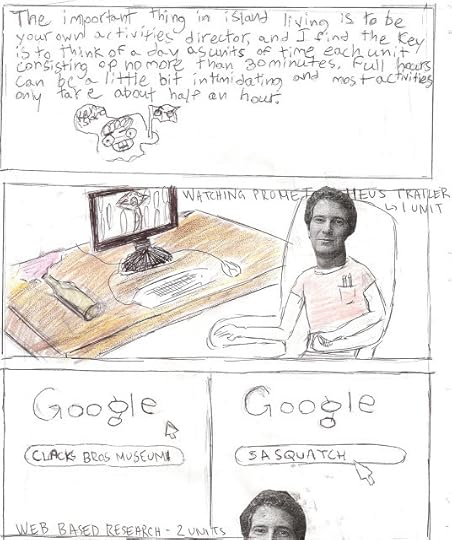 The important thing in island living is to be
your own activities director, and I find the key
is to think of a day as units of time each unit
consisting of no more than 30 minutes. Full hours
can be a little bit intimidating and most activities
only take about half an hour.
WATCHING PROMETHEUS TRAILER
↳ 1 UNIT
Google
CLACKS BROS MUSEUM
Google
SASQUATCH
WEB BASED RESEARCH - 2 UNITS